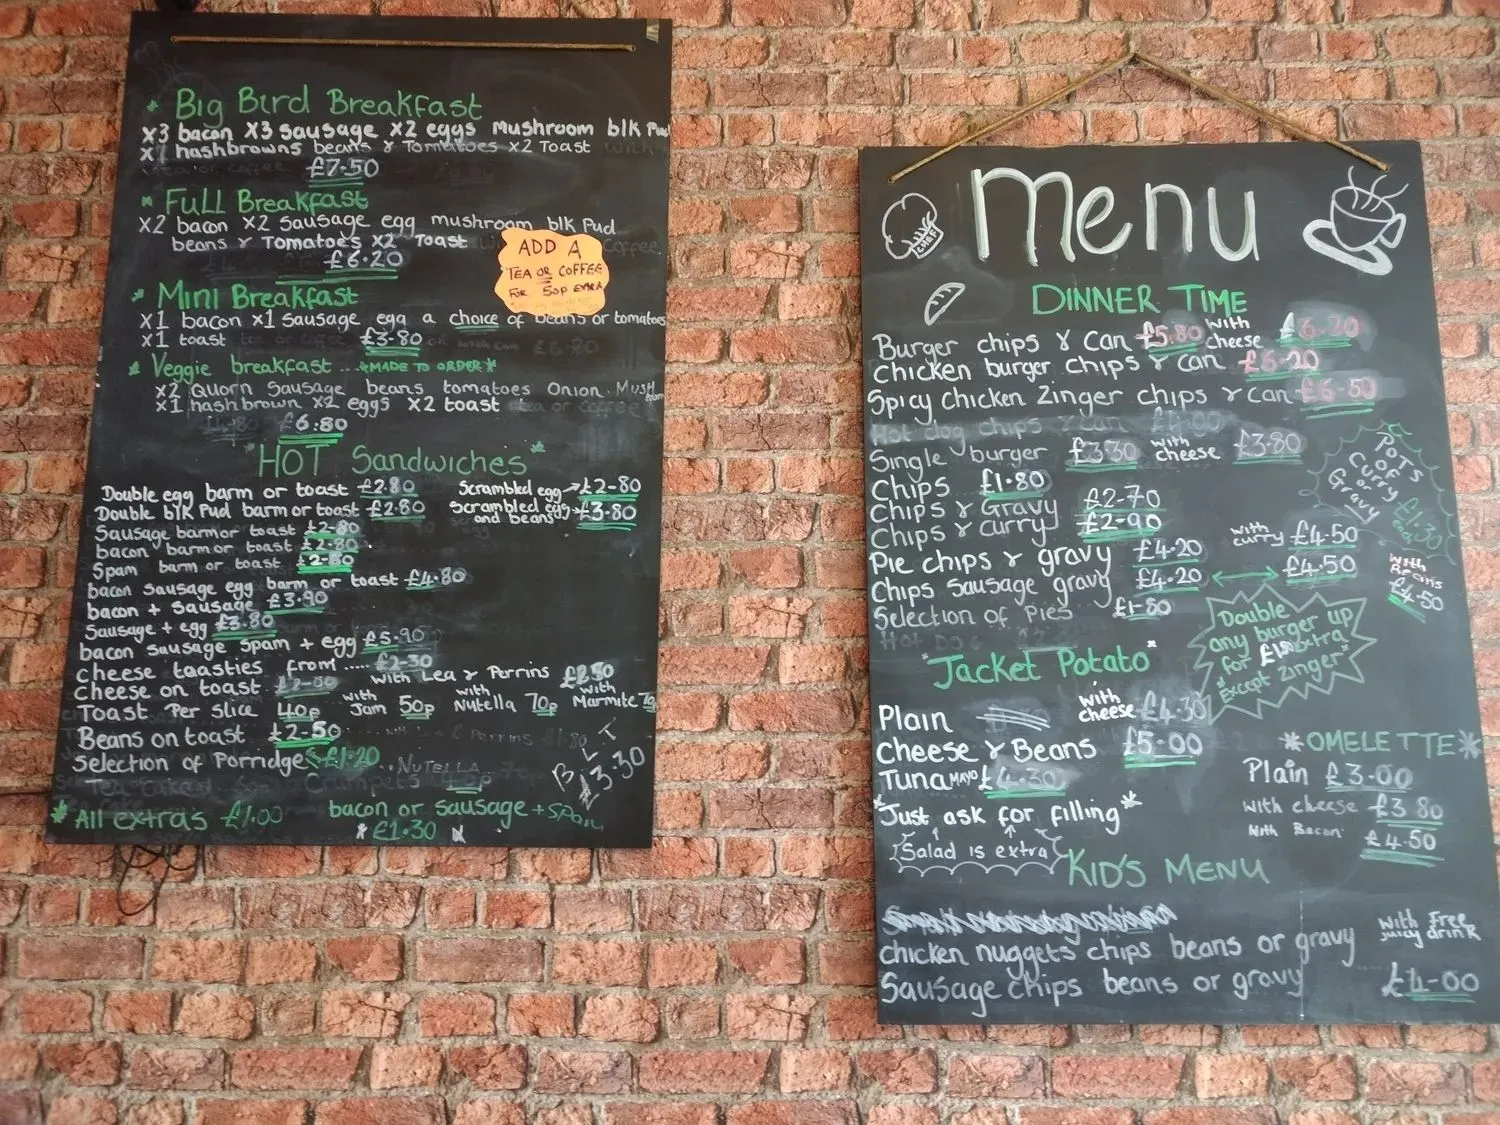 * Big Bird Breakfast
x3 bacon x3 sausage x2 eggs mushroom blk Pud
x1 hashbrowns beans & Tomatoes x2 Toast
£7.50
* Full Breakfast
x2 bacon x2 sausage egg mushroom blk Pud
beans & Tomatoes x2 Toast
£6.20
ADD A
TEA OR COFFEE
FOR 50p EXTRA
* Mini Breakfast
x1 bacon x1 sausage egg a choice of beans or tomatoes
x1 toast £3.80
* Veggie breakfast *MADE TO ORDER*
x2 Quorn Sausage beans tomatoes Onion Mushroom
x1 hashbrown x2 eggs x2 toast
£6.80
"HOT Sandwiches"
Double egg barm or toast £2.80 Scrambled egg → £2-80
Double blk Pud barm or toast £2.80 Scrambled egg and beans → £3.80
Sausage barm or toast £2-80
bacon barm or toast £2-80
Spam barm or toast £2-80
bacon sausage egg barm or toast £4.80
bacon + sausage £3.90
Sausage + egg £3.80
bacon sausage spam + egg £5.90
Cheese toasties from ..... £2-30
Cheese on toast with Lea & Perrins £2.50
Toast Per slice 40p with Jam 50p with Nutella 70p with Marmite
Beans on toast £2-50
Selection of Porridge £1.20
BLT
£3.30
* All extras £1.00 bacon or sausage + Spam
* £1.30
Menu
CHEF
DINNER TIME
Burger chips & Can £5.80 with cheese £6.20
Chicken burger chips & can £6.20
Spicy chicken Zinger chips & can £6.50
Hot dog chips & can
Single burger £3.30 with cheese £3.80
Chips £1.80
Chips & Gravy £2-70
Chips & curry £2-90
Pots of Curry or Gravy £1.30
Pie chips & gravy £4.20 with curry £4.50
Chips Sausage gravy £4.20 ↔ £4.50
with Beans £4.50
Selection of Pies
Double
any burger up
for extra
"Except Zinger"
"Jacket Potato"
Plain with cheese £4.30
Cheese & Beans £5.00
Tuna MAYO £4.30
"Just ask for filling"
Salad is extra
*OMELETTE*
Plain £3.00
with cheese £3.80
with Bacon £4.50
KID'S MENU
with Free juicy drink
chicken nuggets chips beans or gravy
Sausage chips beans or gravy £4-00